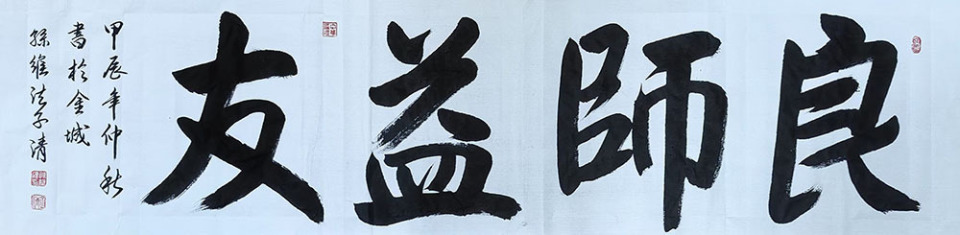 良師益友
甲辰年仲秋
書於金城
孫維法子清